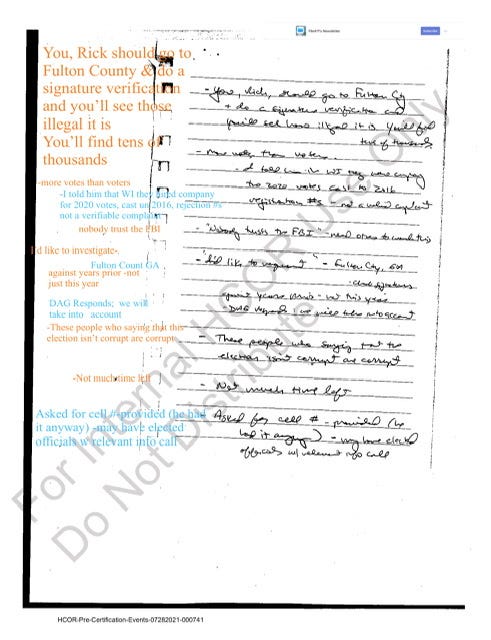 You, Rick should go to
Fulton County & do a
signature verification
and you'll see those
illegal it is
You'll find tens of
thousands
-more votes than voters
-I told him that WI they used company
for 2020 votes, cast un 2016, rejection #s
not a verifiable complain
nobody trust the FBI
I'd like to investigate-.
Fulton Count GA
against years prior -not
just this year
DAG Responds; we will
take into account
-These people who saying that this
election isn't corrupt are corrupt
-Not much time left
Asked for cell #-provided (he had
it anyway) -may have elected
officials w relevant info call
- You, Rich, should go to Fulton Cty
+ do a signature verification and
you'll see how illegal it is You'll find
tens of thousands
- More votes than voters
- I told him in WI they were
the 2020 votes cast to 2016
registration #s - not a valid
- "Nobody trusts the FBI" - need others to
- Fulton City, GA
signatures
- These people who saying that the
election isn't corrupt are corrupt
- Not much time left
Asked for cell # - provided (he
had it anyway) - may have elected
officials w/ relevant info call
For Internal HCOR Use Only
Do Not Distribute
HCOR-Pre-Certification-Events-07282021-000741